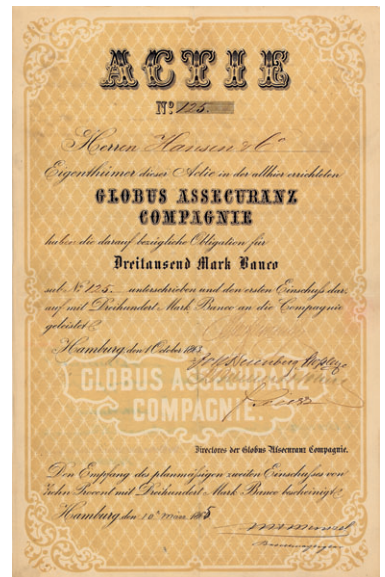 ACTIE
Nº 125.
Herren Hansen & Co
Eigenthümer dieser Actie in der allhier errichteten
GLOBUS ASSECURANZ
COMPAGNIE
haben die darauf bezügliche Obligation für
Dreitausend Mark Banco
sub. Nº 125. unterschrieben und den ersten Einschuss dar-
auf mit Dreihundert Mark Banco an die Compagnie
geleistet.
Hamburg den 1 October 1863
GLOBUS ASSECURANZ
COMPAGNIE
Directores der Globus Assecuranz Compagnie.
Den Empfang des planmässigen zweiten Einschusses von
Zehn Procent mit Dreihundert Mark Banco bescheinigt
Hamburg den 10